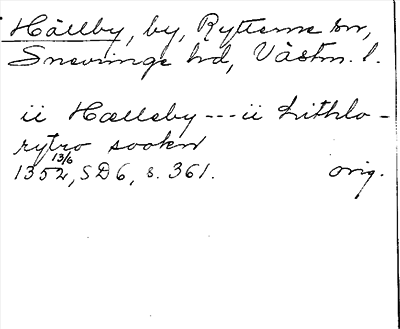 Hällby, by, Rytterne sn,
Snevringe hd, Västm. l.
ii Hælleby --- ii Lithlo-
rytro sookn
1352 13/6, SD 6, s. 361. orig.